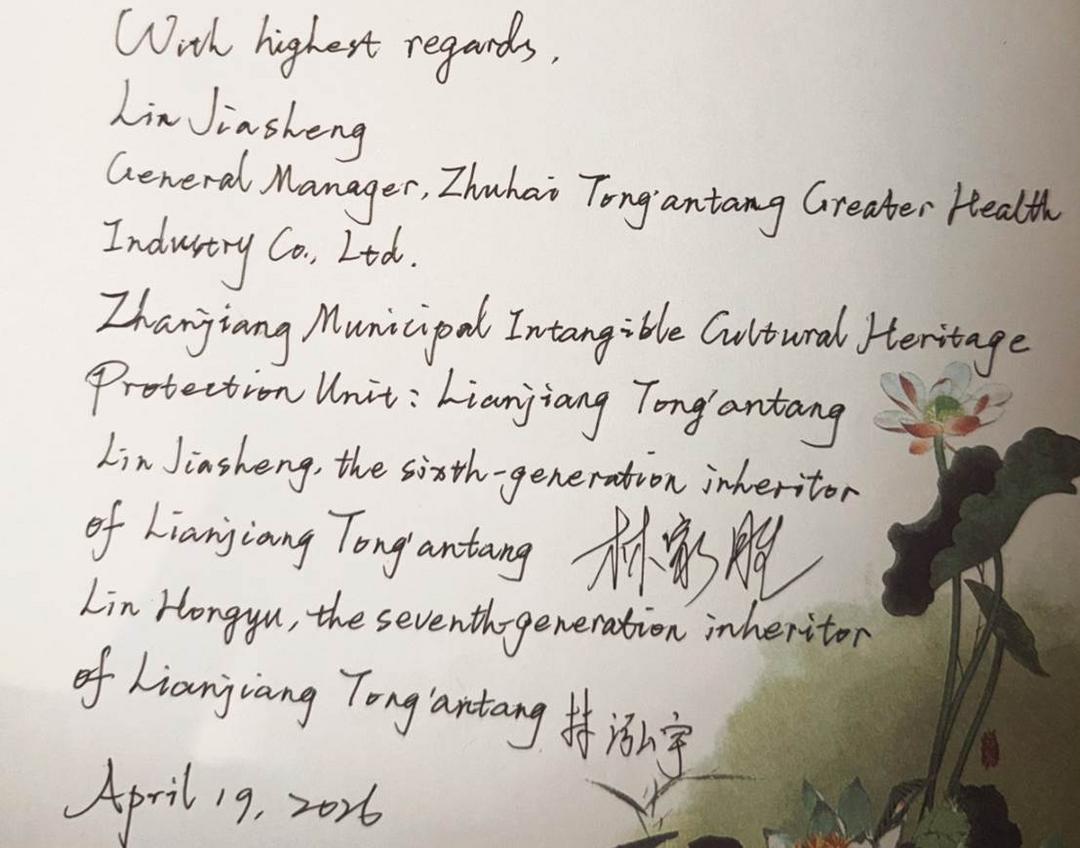 With highest regards,
Lin Jiasheng
General Manager, Zhuhai Tong'antang Greater Health
Industry Co., Ltd.
Zhanjiang Municipal Intangible Cultural Heritage
Protection Unit: Lianjiang Tong'antang
Lin Jiasheng, the sixth-generation inheritor
of Lianjiang Tong'antang 林家胜
Lin Hongyu, the seventh-generation inheritor
of Lianjiang Tong'antang 林泓宇
April 19, 2026